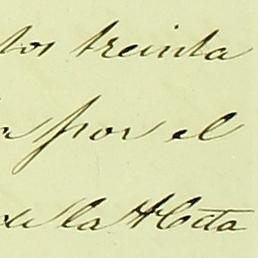 tos treinta
por el
de la Acta